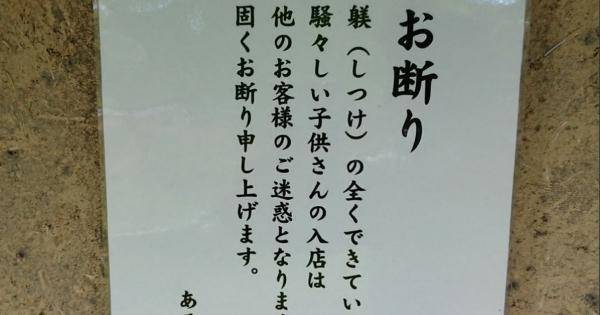 お断り
躾（しつけ）の全くできてい
騒々しい子供さんの入店は
他のお客様のご迷惑となりま
固くお断り申し上げます。
あ